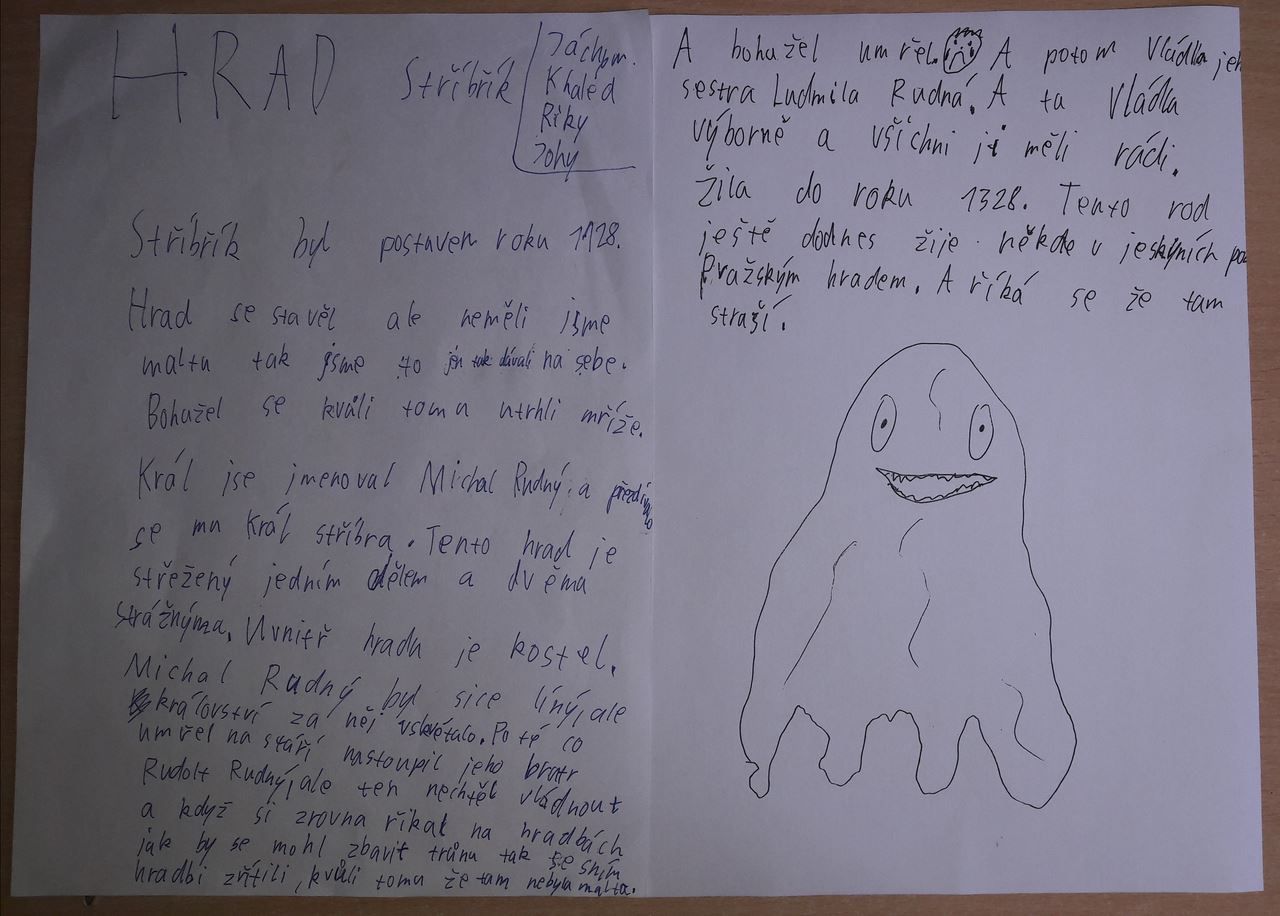 HRAD Stříbřík
Jáchym.
Khaled
Riky
Johy
Stříbřík byl postaven roku 1128.
Hrad se stavěl ale neměli jsme
maltu tak jsme to jen tak dávali na sebe.
Bohužel se kvůli tomu utrhli mříže.
Král jse jmenoval Michal Rudný, a
se mu Král stříbra. Tento hrad je
střežený jedním dělem a dvěma
strážnýma. Uvnitř hradu je kostel.
Michal Rudný byl sice líný, ale
království za něj vskvétalo. Po té co
umřel na stáří nastoupil jeho bratr
Rudolt Rudný, ale ten nechtěl vládnout
a když si zrovna říkal na hradbách
jak by se mohl zbavit trůnu tak se sním
hradbi zřítili, kvůli tomu že tam nebyla malta.
A bohužel umřel. A potom Vládla jeh
sestra Ludmila Rudná. A ta Vládla
výborně a všichni ji měli rádi.
Žila do roku 1328. Tento rod
ještě dodnes žije někde v jeskyních po
Pražským hradem. A říká se že tam
straší.